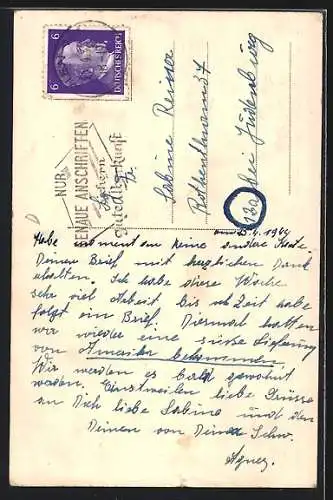 6
6
DEUTSCHES REICH
NUR
GENAUE ANSCHRIFTEN
sichern
gute Ankunft
Sabine
Rothenthurm 37
bei Judenburg
12a
am 5.4.1944
Habe im Moment an keine andere Karte
Deinen Brief mit herzlichen Dank
erhalten. Ich habe diese Woche
sehr viel Arbeit bis ich Zeit habe
folgt ein Brief. Diesmal hatten
wir wieder eine süsse Lieferung
von Amerika bekommen.
Wir werden es bald gewohnt
werden. Einstweilen liebe Grüsse
an Dich liebe Sabine und den
Deinen von Deine Schw.
Agnes.